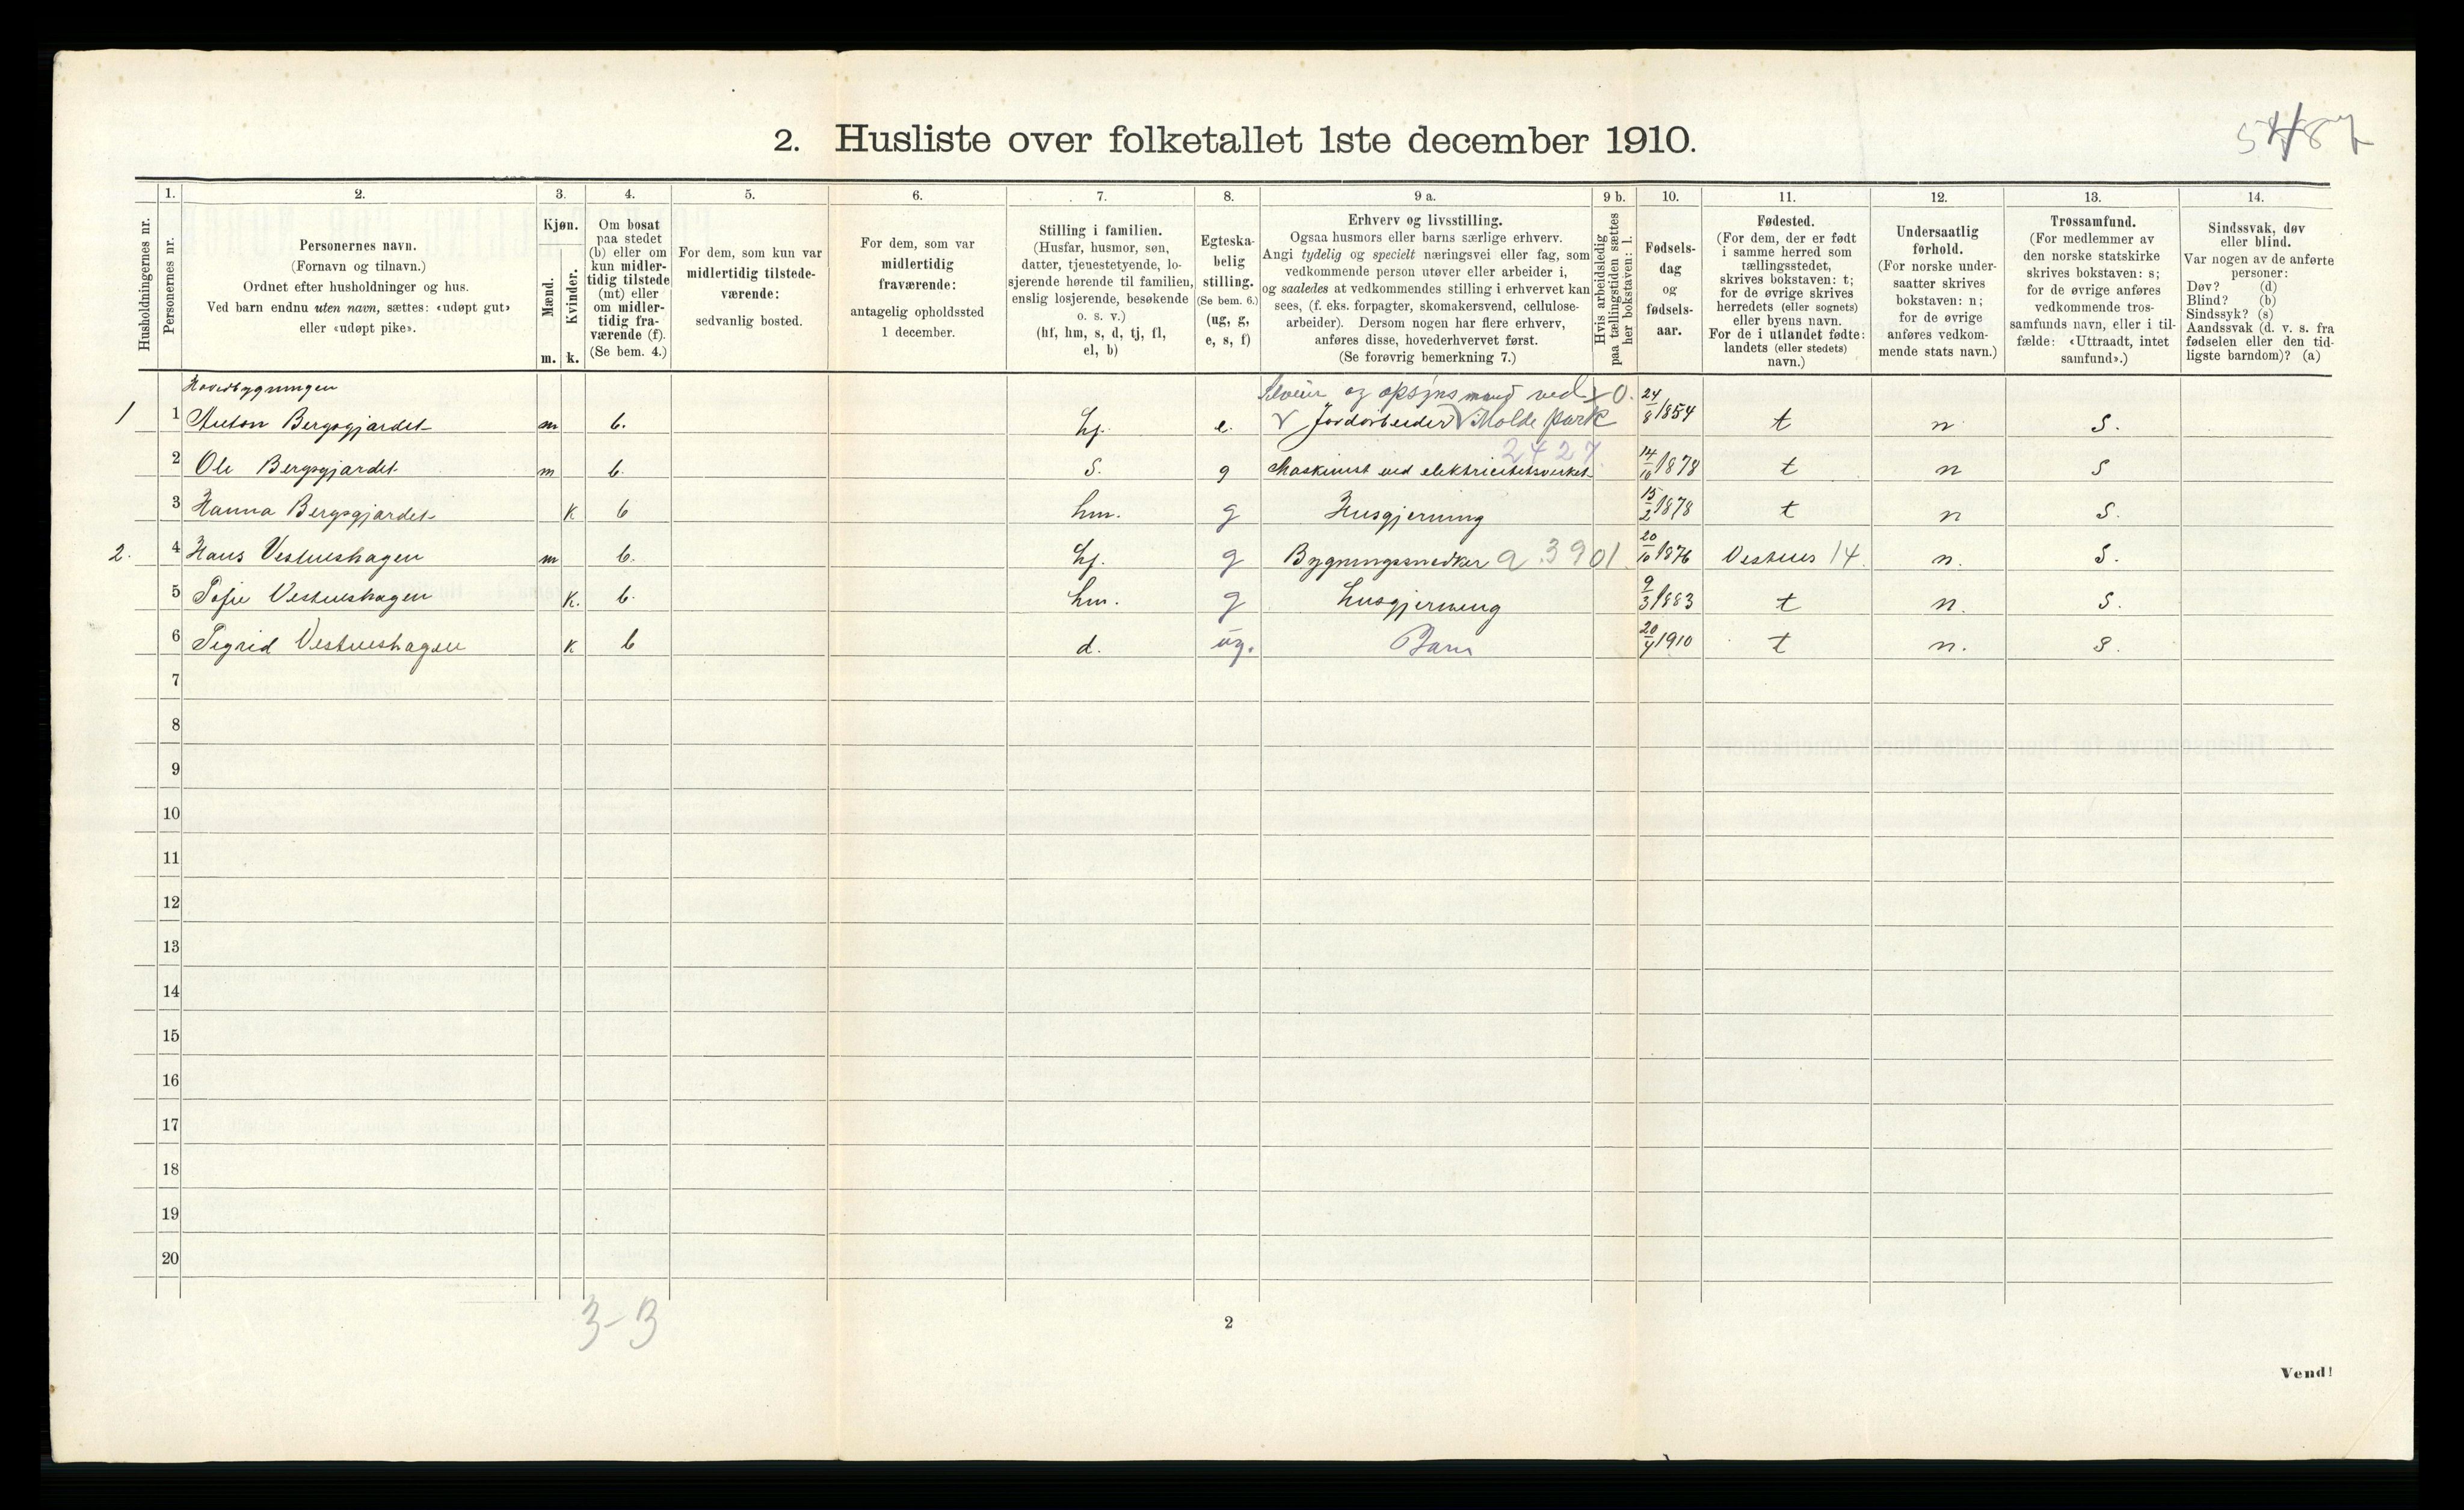 2. Husliste over folketallet 1ste december 1910.
Husholdningernes nr.
1.
Personernes nr.
2.
Personernes navn.
(Fornavn og tilnavn.)
Ordnet efter husholdninger og hus.
Ved barn endnu uten navn, sættes: «udøpt gut»
eller «udøpt pike».
3.
Kjøn.
Mænd.
Kvinder.
m. k.
4.
Om bosat
paa stedet
(b) eller om
kun midler-
tidig tilstede
(mt) eller
om midler-
tidig fra-
værende (f).
(Se bem. 4.)
5.
For dem, som kun var
midlertidig tilstede-
værende:
sedvanlig bosted.
6.
For dem, som var
midlertidig
fraværende:
antagelig opholdssted
1 december.
7.
Stilling i familien.
(Husfar, husmor, søn,
datter, tjenestetyende, lo-
sjerende hørende til familien,
enslig losjerende, besøkende
o. s. v.)
(hf, hm, s, d, tj, fl,
el, b)
8.
Egteska-
belig
stilling.
(Se bem. 6.)
(ug, g,
e, s, f)
9 a.
Erhverv og livsstilling.
Ogsaa husmors eller barns særlige erhverv.
Angi tydelig og specielt næringsvei eller fag, som
vedkommende person utøver eller arbeider i,
og saaledes at vedkommendes stilling i erhvervet kan
sees, (f. eks. forpagter, skomakersvend, cellulose-
arbeider). Dersom nogen har flere erhverv,
anføres disse, hovederhvervet først.
(Se forøvrig bemerkning 7.)
9 b.
Hvis arbeidsledig
paa tællingstiden sættes
her bokstaven: l.
10.
Fødsels-
dag
og
fødsels-
aar.
11.
Fødested.
(For dem, der er født
i samme herred som
tællingsstedet,
skrives bokstaven: t;
for de øvrige skrives
herredets (eller sognets)
eller byens navn.
For de i utlandet fødte:
landets (eller stedets)
navn.)
12.
Undersaatlig
forhold.
(For norske under-
saatter skrives
bokstaven: n;
for de øvrige
anføres vedkom-
mende stats navn.)
13.
Trossamfund.
(For medlemmer av
den norske statskirke
skrives bokstaven: s;
for de øvrige anføres
vedkommende tros-
samfunds navn, eller i til-
fælde: «Uttraadt, intet
samfund».)
14.
Sindssvak, døv
eller blind.
Var nogen av de anførte
personer:
Døv? (d)
Blind? (b)
Sindssyk? (s)
Aandssvak (d. v. s. fra
fødselen eller den tid-
ligste barndom)? (a)
Hovedbygningen
og opsynsmand ved
1 1 Anton Bergsgjærdet m b. hf. e. Jordarbeider Molde park 24/8 1854 t n s.
2427
2 Ole Bergsgjærdet m b. s. g Maskinist ved elektricitetsverket 14/10 1878 t n s
3 Hanna Bergsgjærdet k b hm. g Husgjerning 15/2 1878 t n s.
2. 4 Hans Vestneshagen m b. hf. g Bygningssnedker a 3901 20/10 1876 Vestnes 14 n. s.
5 Sofie Vestneshagen k. b. hm. g Husgjerning 9/3 1883 t n. s.
6 Sigrid Vestneshagen k b d. ug. Barn 20/4 1910 t n. s.
7
8
9
10
11
12
13
14
15
16
17
18
19
20
3-3
2
Vend!